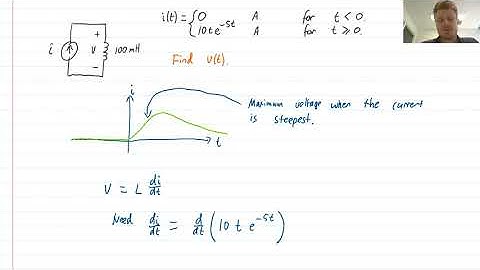 i(t) = { 0 A for t < 0.
10te^-5t A for t ≥ 0.
i + v - 100mH
Find v(t).
i
Maximum voltage when the current
is steepest.
t
V = L di/dt
Need di/dt = d/dt (10 t e^-5t)